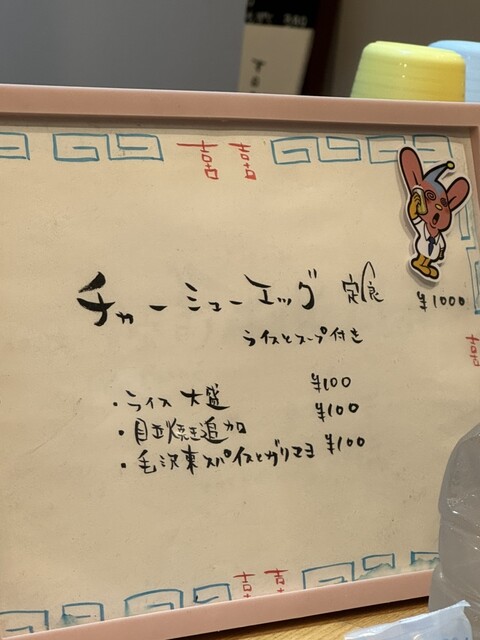 囍 囍
チャーシューエッグ 定食 ¥1000
ライスとスープ付き
・ライス大盛 ¥100
・目玉焼き追加 ¥100
・毛沢東スパイスとガリマヨ ¥100
囍
囍 囍